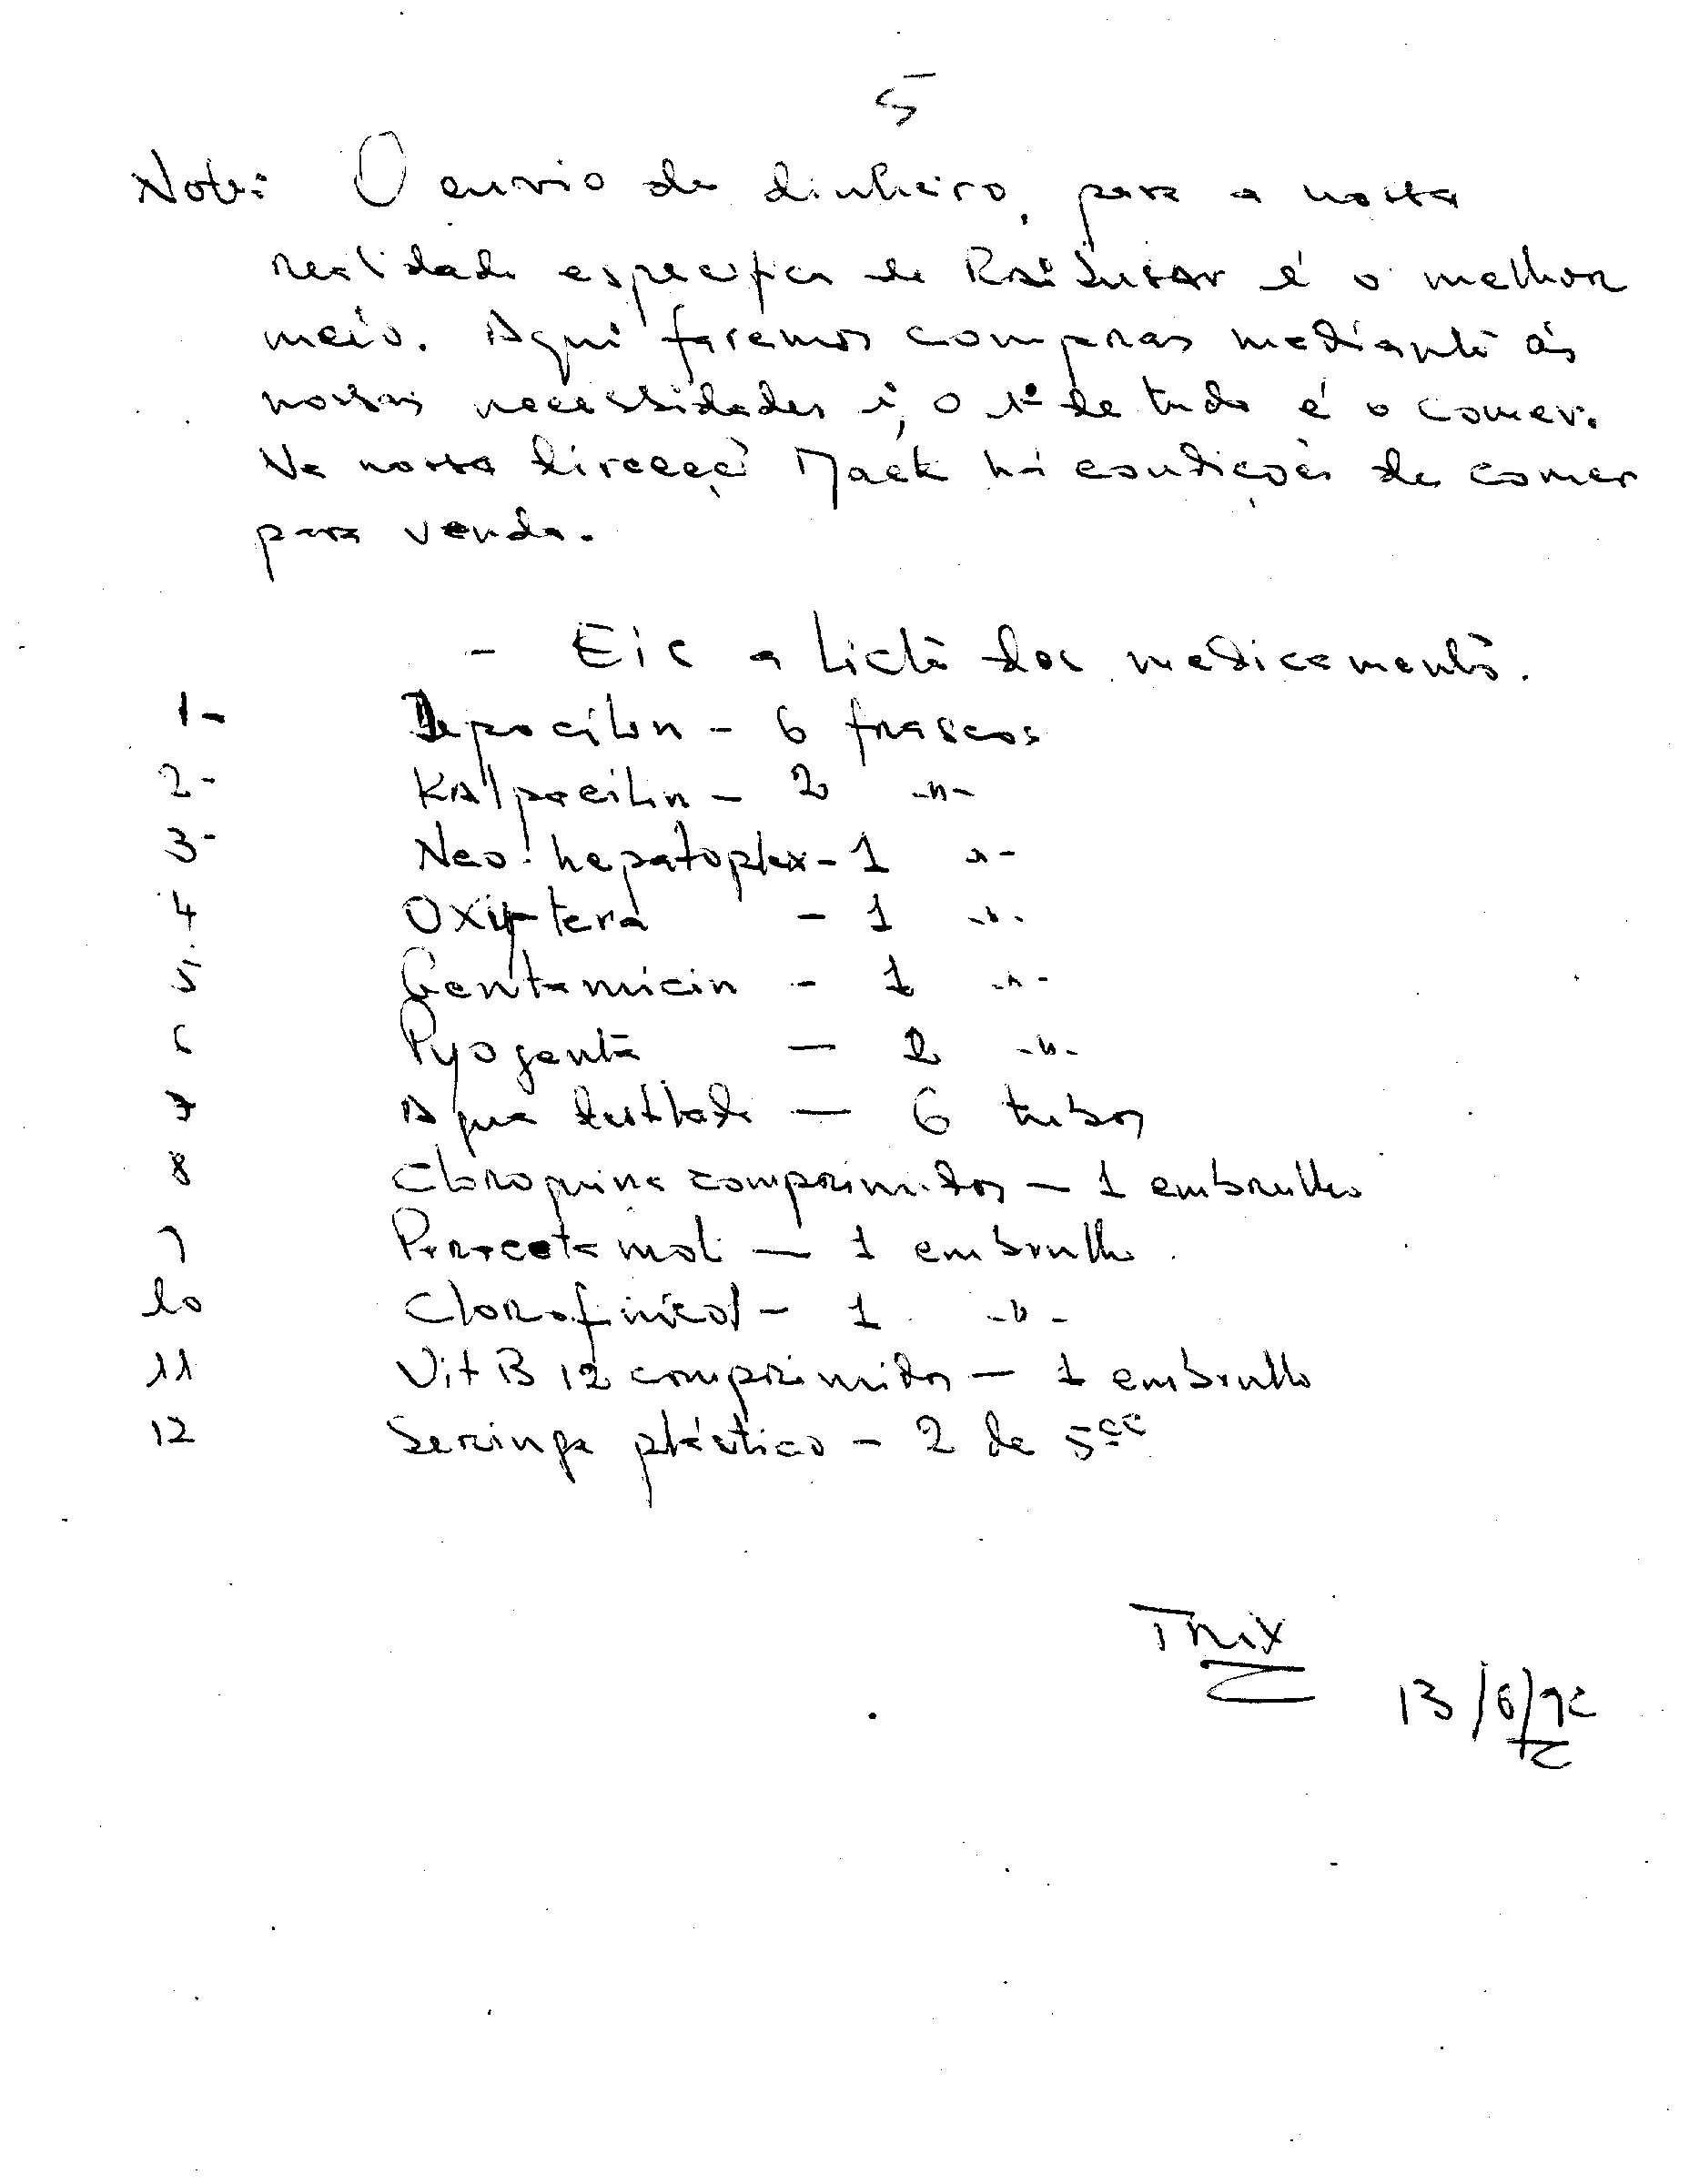 5
Nota: O envio de dinheiro, para a nossa
realidade especifica de RAiSutar é o melhor
meio. Aqui faremos compras mediante ás
nossas necessidades i, o 1º de tudo é o comer.
Na nossa direcçã Maek há condições de comer
para venda.
- Eis a Lista dos medicamentos.
1- Depocilin - 6 frascos
2- KAlpacilin - 2 -"-
3- Neo-hepatoplex - 1 "-
4 Oxy-tera - 1 -"-
5 Gentamicin - 1 -"-
6 Pyogenta - 2 -"-
7 Agua destilada - 6 tubos
8 Cloroquina comprimidos - 1 embrulho
9 Paracetamol - 1 embrulho
10 Clorofinicol - 1 -"-
11 Vit B 12 comprimidos - 1 embrulho
12 Seringa plástico - 2 de 5cc
TRix
13/6/92